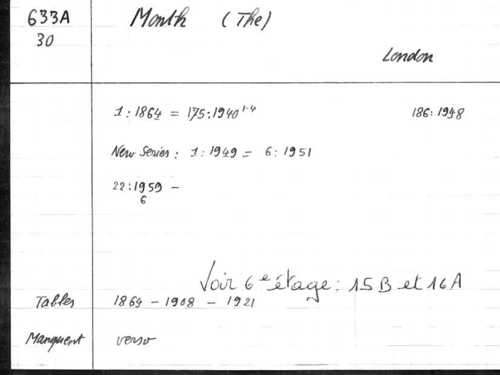 633A Month (The)
30
London
1 : 1864 = 175 : 1940 1-4 186 : 1948
New Series : 1 : 1949 = 6 : 1951
22 : 1959 -
6
Voir 6e étage : 15B et 16A
Tables 1864 - 1908 - 1921
Manquent verso